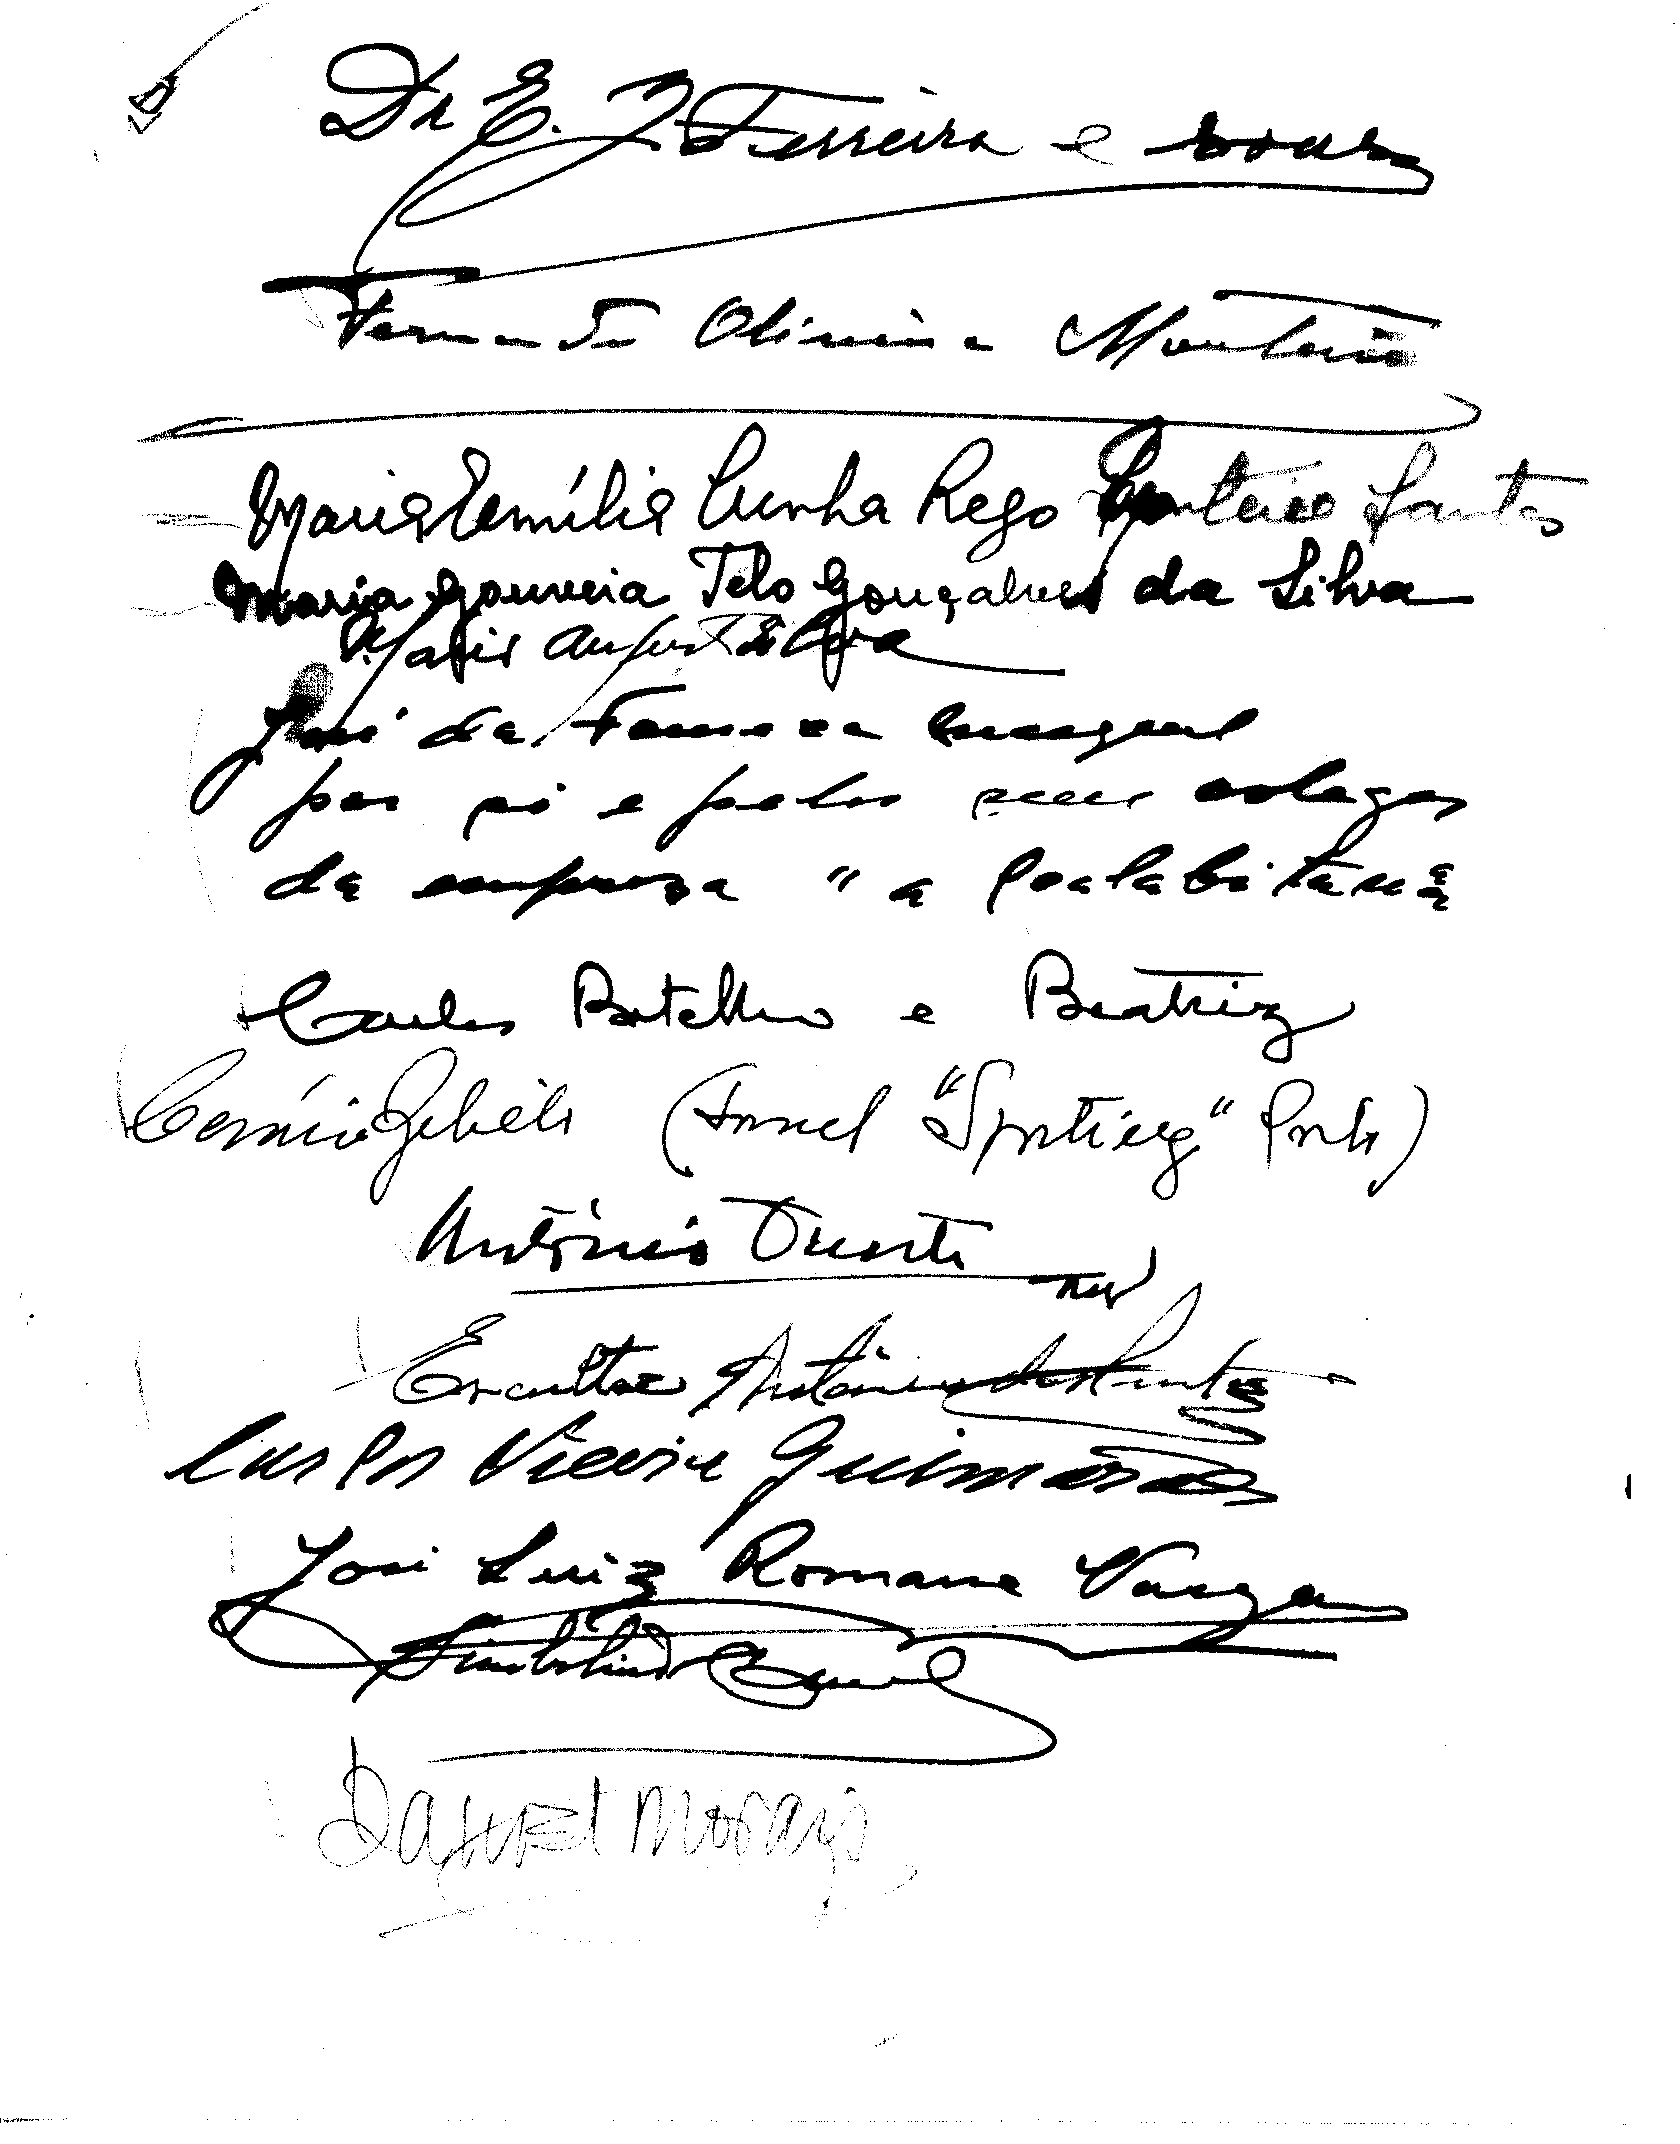 Dr E. J Ferreira e
Fernando Oliveira Monteiro
Maria Emília Cunha Rego Monteiro Santos
Maria Gouveia Telo Gonçalves da Silva
Maria Augusta Silva
José da Fonseca
por si e pelos seus colegas
da empresa "a Scalabitana
Carlos Botelho e Beatriz
(Jornal "Sporting" Porto)
António Duarte
Escultor António dos Santos
Carlos Vieira Guimarães
José Luiz Romana Varga
Daniel Morais